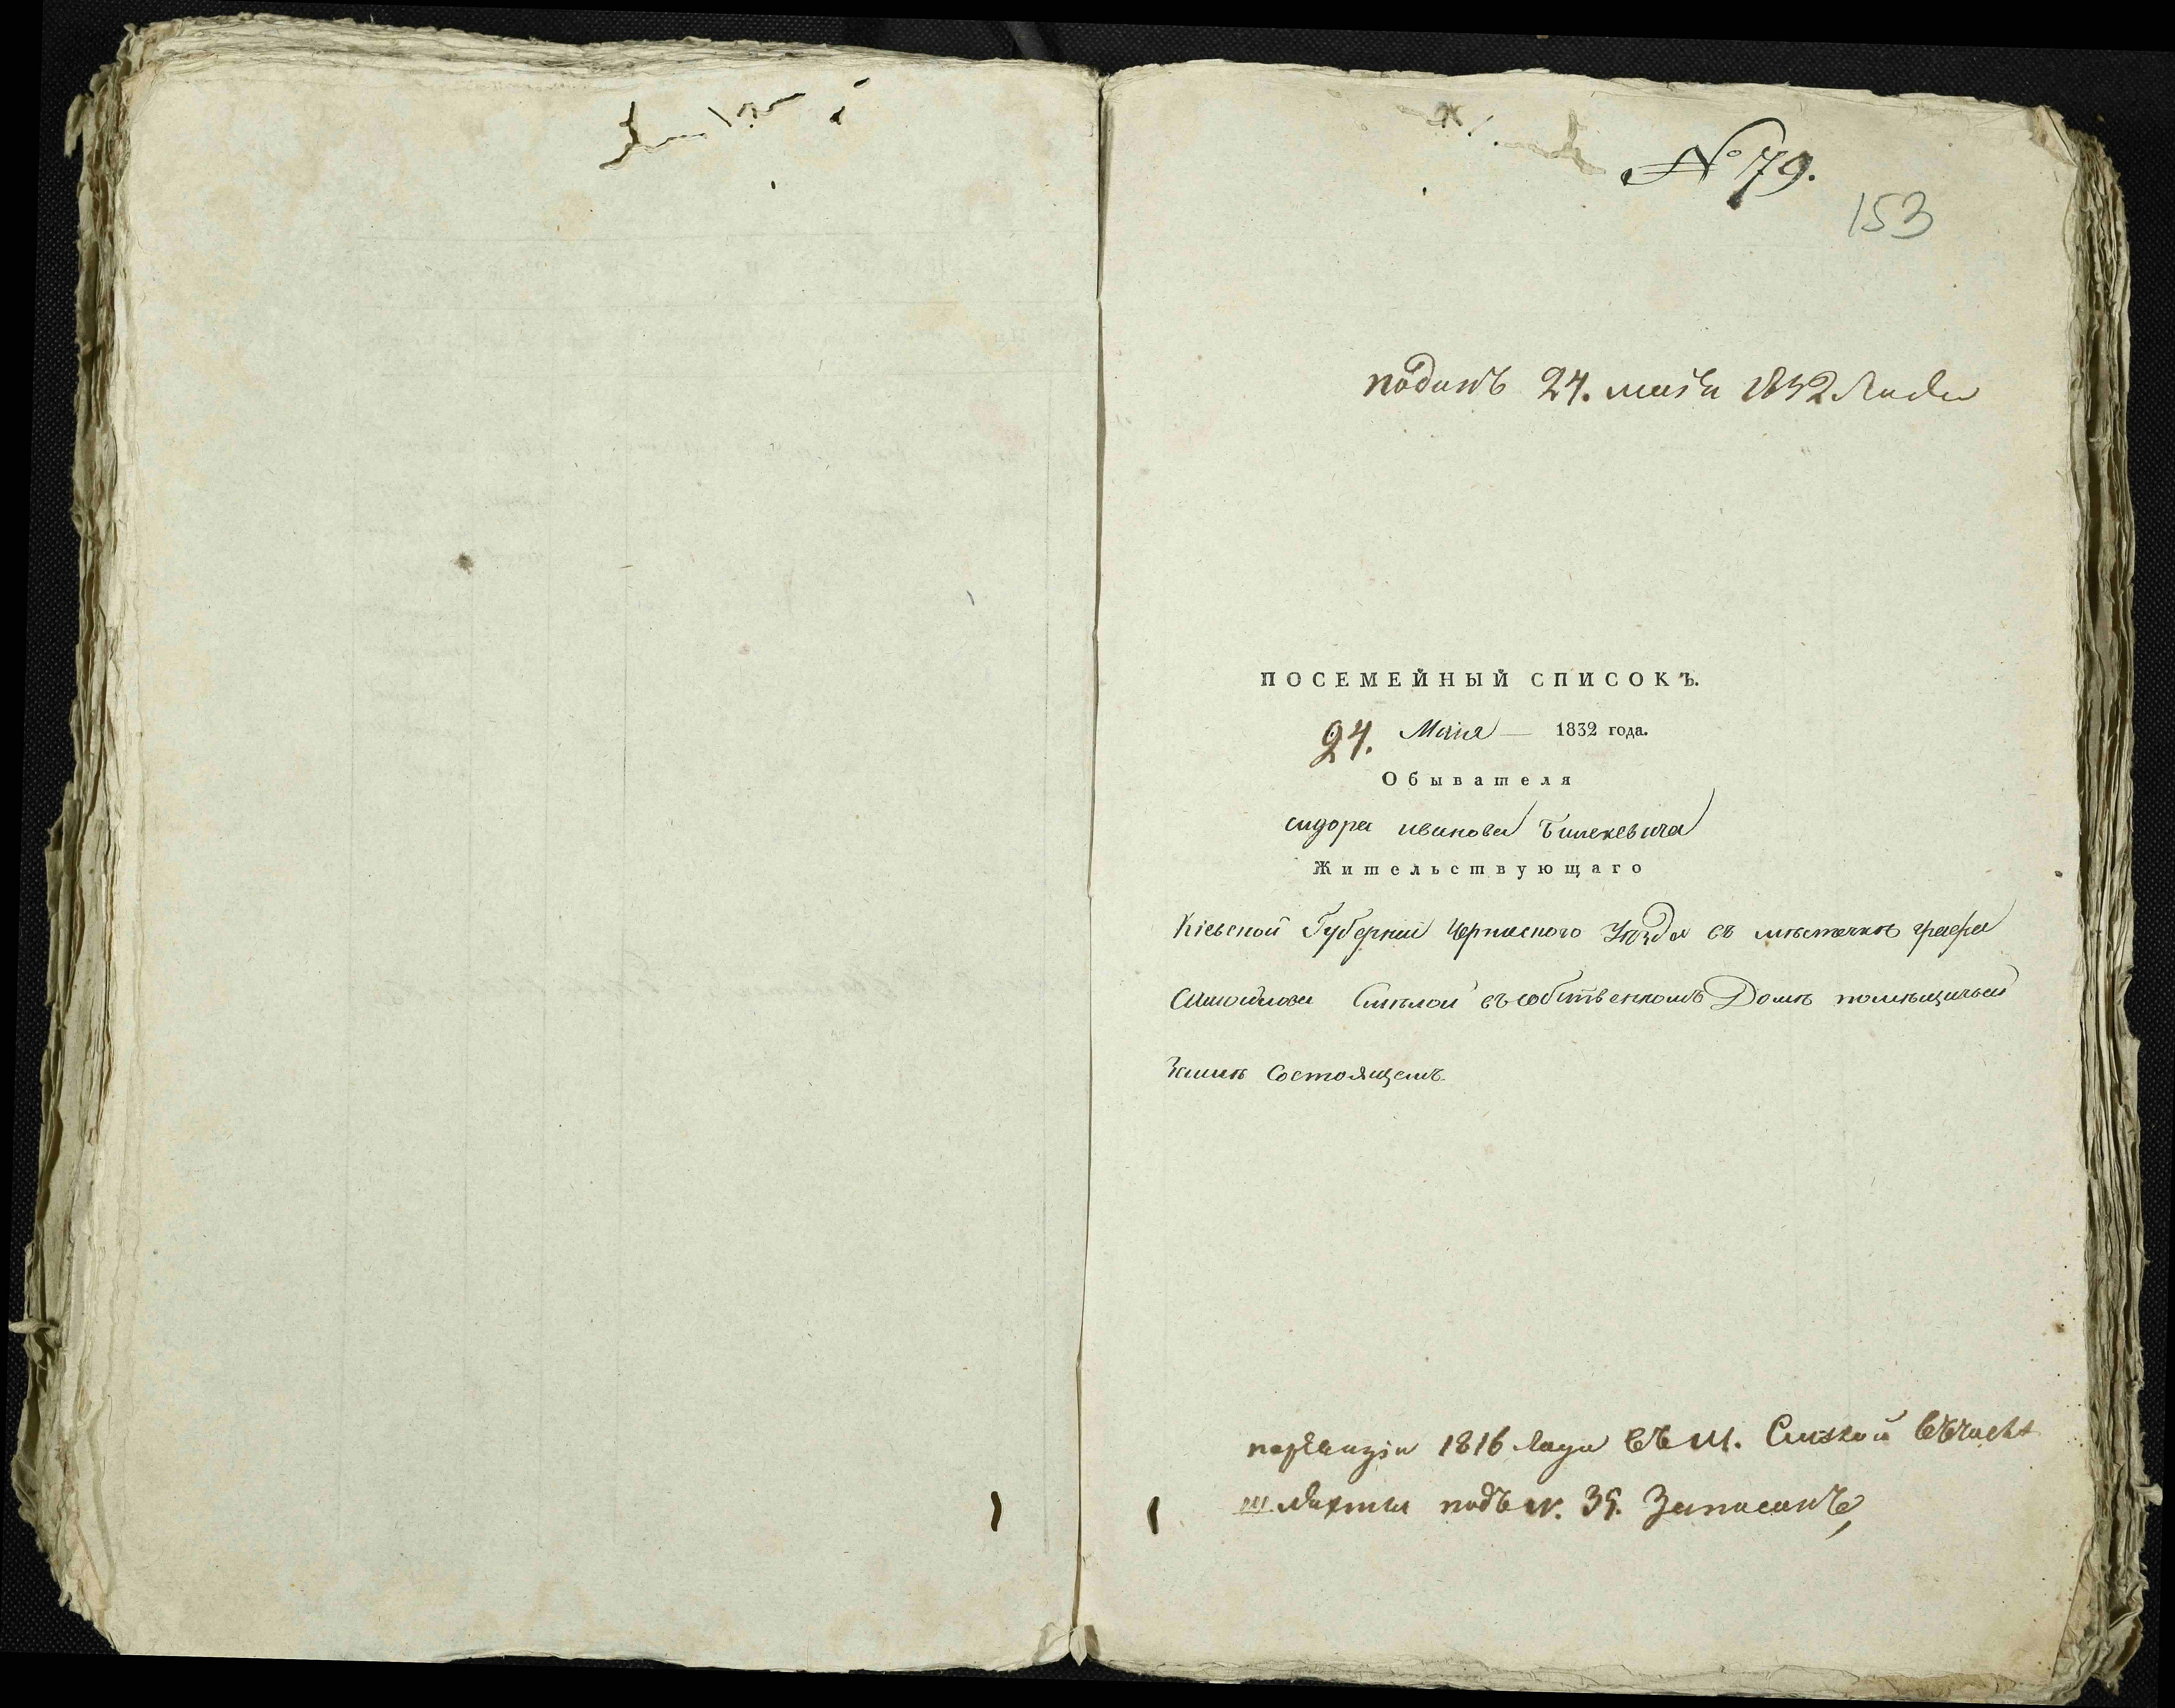 № 79.
153
поданъ 24. маія 1832 года
ПОСЕМЕЙНЫЙ СПИСОКЪ.
24. Маія — 1832 года.
Обывателя
сидора иванова Билекевича
Жительствующаго
Кіевской Губерніи Черкаского Уѣзда въ мѣстечкѣ графа
Самойлова Смѣлой въ собственномъ Домѣ помѣщичьей
Землѣ Состоящемъ.
по ревизіи 1816 года въ м. Смѣлой въ числѣ
шляхты подъ №. 35. Записанъ,